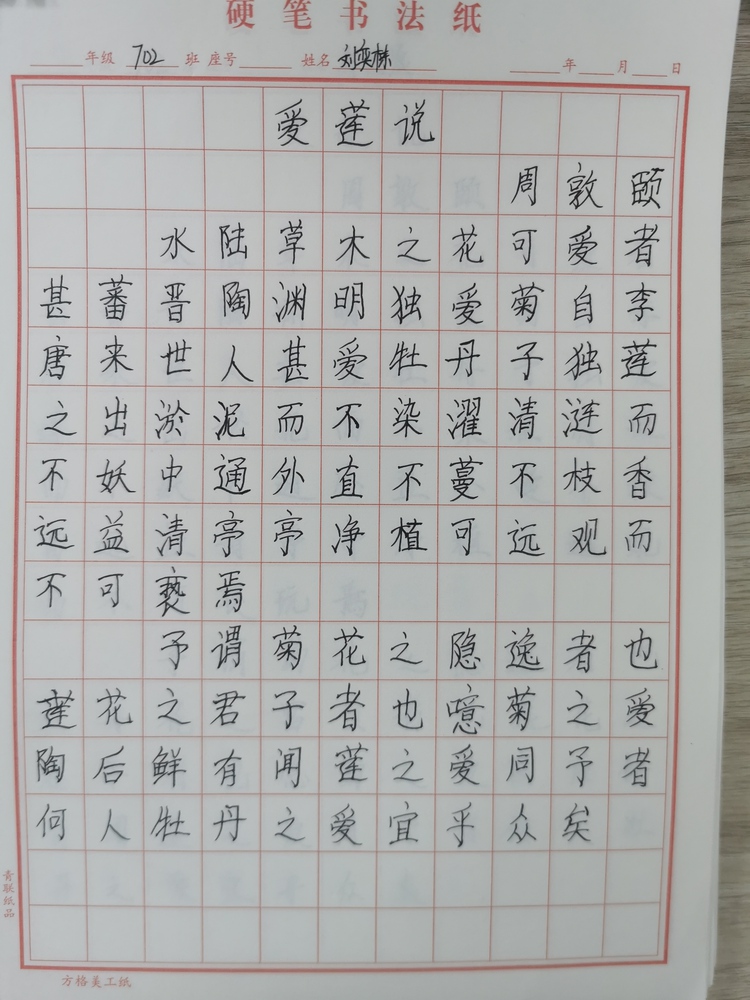 硬笔书法纸
年级 702 班 座号 姓名 刘奕株 年 月 日
爱莲说
周敦颐
水陆草木之花可爱者
甚蕃晋陶渊明独爱菊自李
唐来世人甚爱牡丹子独莲
之出淤泥而不染濯清涟而
不妖中通外直不蔓不枝香
远益清亭亭净植可远观而
不可亵焉
予谓菊花之隐逸者也
莲花之君子者也噫菊之爱
陶后鲜有闻莲之爱同予者
何人牡丹之爱宜乎众矣
青联纸品
方格美工纸